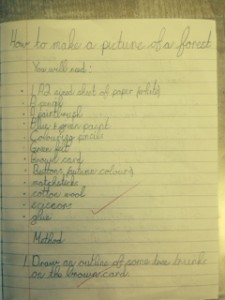 How to make a picture of a forest
You will need:
• 1 A2 sized sheet of paper
• 1 pencil
• 1 paintbrush
• Blue & green paint
• Colouring pencils
• Green felt
• Brown card
• Buttons
• matchsticks
• cotton wool
• scissors
• glue
Method
1. Draw an outline of some tree trunks
on the brown card.